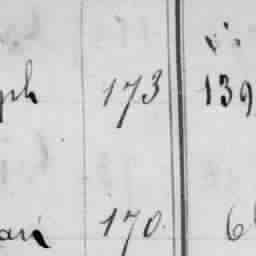 ph 173 139
ari 170 6